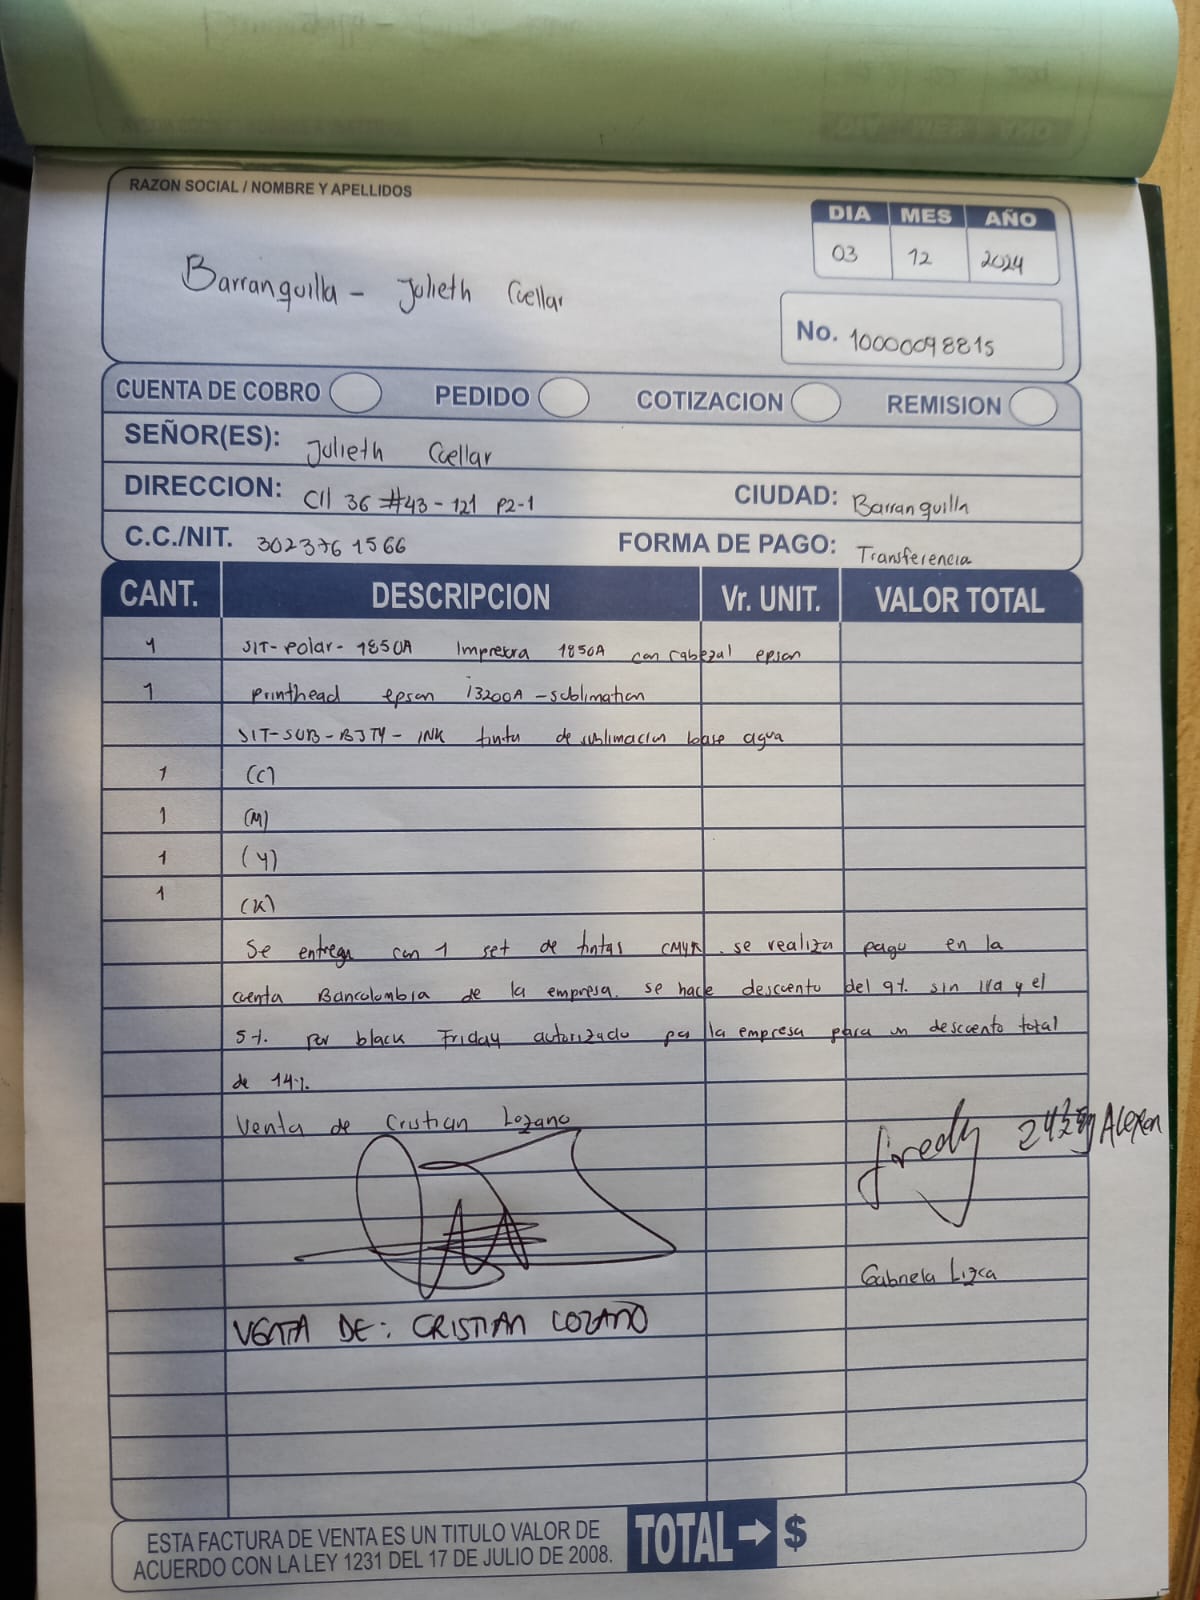 RAZON SOCIAL / NOMBRE Y APELLIDOS
DIA MES AÑO
03 12 2024
Barranquilla - Julieth Cuellar
No. 10000098815
CUENTA DE COBRO PEDIDO COTIZACION REMISION
SEÑOR(ES): Julieth Cuellar
DIRECCION: Cll 36 #43-121 P2-1 CIUDAD: Barranquilla
C.C./NIT. 3023761566 FORMA DE PAGO: Transferencia
CANT. DESCRIPCION Vr. UNIT. VALOR TOTAL
1 SIT-Polar-1850A Impresora 1850A con cabezal epson
1 Printhead epson i3200A-sublimation
SIT-SUB-BJTY-INK tinta de sublimacion base agua
1 (C)
1 (M)
1 (Y)
1 (K)
Se entrega con 1 set de tintas CMYK. se realiza pago en la
cuenta Bancolombia de la empresa. se hace descuento del 9% sin iva y el
5% por black Friday autorizado por la empresa para un descuento total
de 14%.
Venta de Cristian Lozano
Fredy Alexon
Gabriela Lizca
VENTA DE: CRISTIAN LOZANO
ESTA FACTURA DE VENTA ES UN TITULO VALOR DE
ACUERDO CON LA LEY 1231 DEL 17 DE JULIO DE 2008.
TOTAL → $